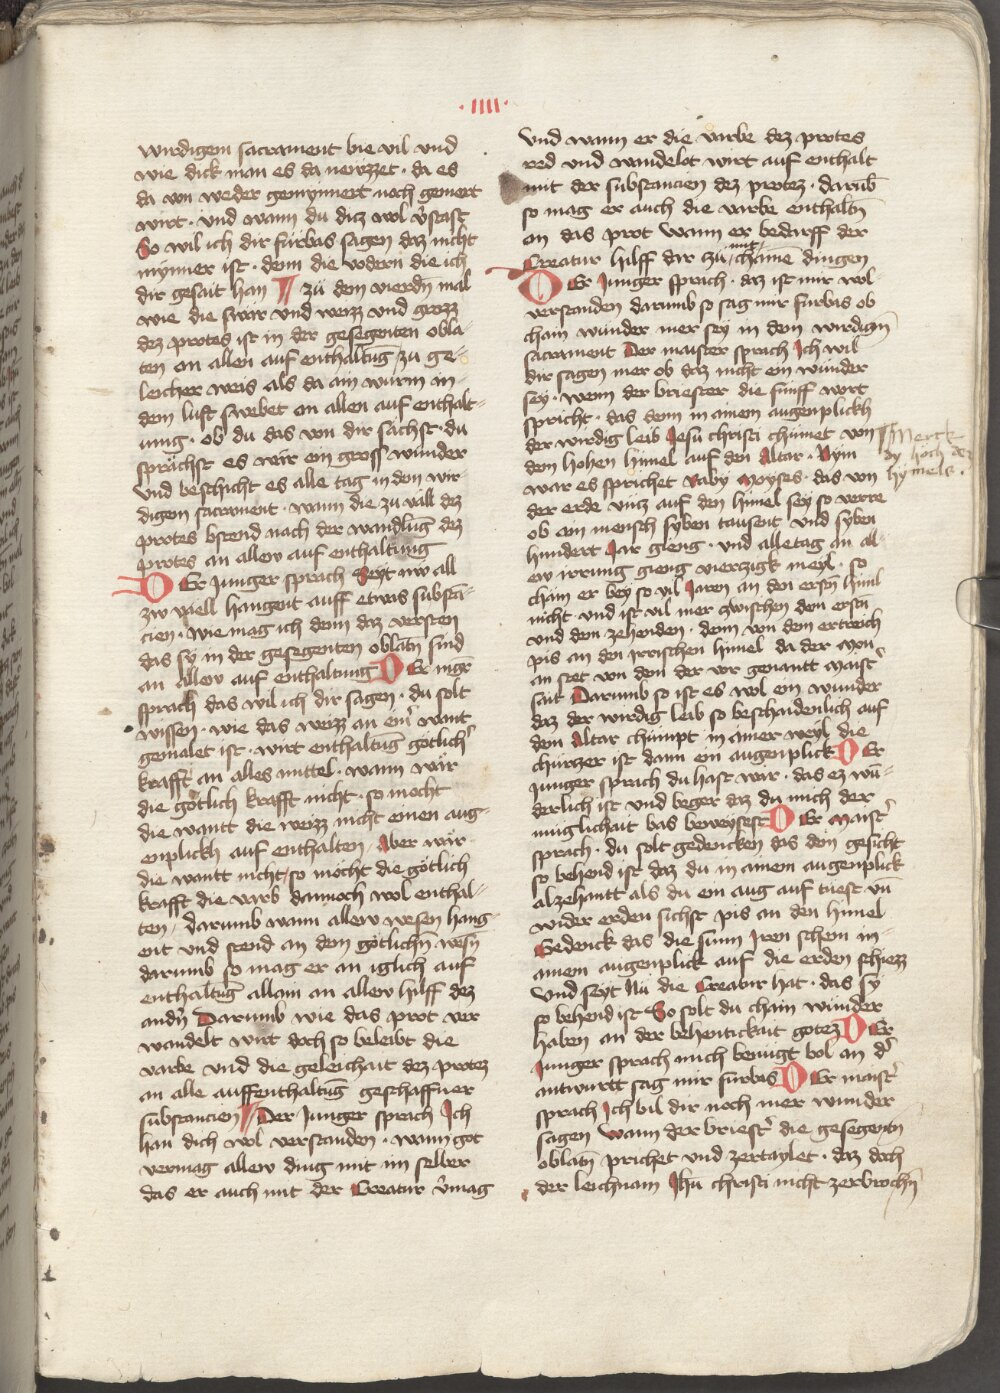 ·IIII·
wirdigem sacrament bie vil und
wie dick man es da neuzzet · da es
da von weder gemynnert noch gemert
wirt · und wann du ditz wol v̉stast
So wil ich dir fürbas sagen daz nicht
mynner ist · denn die vodern die ich
dir gesait han ¶ zü dem vierdn̄ mal
wie die swar und weizz und grozz
dez protes ist in der gesegenten obla-
ten on allen auf enthaltūg zu ge-
leicher weis als da ain wurm in
dem luft swebet on allen auf enthalt-
nung · ob du das von dir sächst · du
sprächst es wär ein gross wunder
Und beschicht es alle tag in den wir
digen sacrament · wann die zu väll dez
protes bstend nach der wandlūg dez
protes an allew auf enthaltung
DEr junger sprach Seyt nw all
zw väell hangent auff etwas substā-
cien · wie mag ich denn daz versten
das sy in der gesegenten oblatn̄ sind
an allew auf enthaltung DEr mgr
sprach das wil ich dir sagen · du solt
wissen · wie das weizz an ein̉ want
gemalet ist · wirt enthaltūg götlich̉
krafft an alles mittel · wann wär
die götlich krafft nicht · so mocht
die wantt die weizz nicht einen aug-
enplickh auf enthalten / Aber wär
die wantt nicht / so möcht die götlich
krafft die varb dannoch wol enthal-
ten / darumb wann allew wesen hang-
ent und stend an dem götlichn̄ wesn̄
darumb so mag er an iglich auf
enthaltūg allain an allew hilff dez
andn̉ Darumb wie das prot ver
wandelt wirt doch so beleibt die
varbe und die geleichait dez protez
an alle auffenthaltūg geschaffner
substancien ¶ Der junger sprach Ich
han dich wol verstanden · wann got
vermag allew ding mit im selber
das er auch mit der Creatur v̉mag
Und wann er die varbe dez protes
red und wandelot wirt auf enthalt
mit der substancien dez protez · darūb
so mag er auch die varbe enthaltn̄
on das prot wann er bedarff der
Creatur hilff dar zü mit chainē dingen
DEr junger sprach · daz ist mir wol
verstanden darumb so sag mir fürbas ob
chain wunder mer sey in dem wirdign̄
sacrament Der maister sprach Ich wil
dir sagen mer ob daz nicht ein wunder
sey · wenn der briester die funff wort
spricht · das denn in ainem augenplickh
der wirdig leib Jesu christi chümet von
dem hohen himel auf den Altar · Nym
war es sprichet raby moyses · das von
der erde vntz auf den himel sey so verre
ob ain mensch syben tausent und syben
hundert Jar gieng · und alle tag an all
ew irrung gieng vierzigk meyl · so
chäm er bey so vil Jaren an den erstn̄ himl
nicht · und ist vil mer zwischen dem erstn̄
und dem zehenden · denn von dem ertreich
pis an den irrischen himel da der mon
an stet von dem der vor genantt Maist̉
sait Darumb so ist es wol ein wunder
daz der wirdig leib so beschaidenlich auf
dem Altar chümpt in ainer weyl die
chürtzer ist dann ein augenplick DEr
junger sprach du hast war · das ez wū-
derlich ist und beger daz du mich der
müglichait bas beweysest DEr Maist̉
sprach · du solt gedencken das dein gesicht
so behend ist daz du in ainem augenplick
alzehantt als du ein aug auf tüest vn̄
wider erden sichst pis an den himel
Gedenck das die sunn Iren schein in
ainem augenplick auf die erden schiezz
Und seyt Nü die Creatur hat · das sy
so behend ist So solt du chain wunder
haben an der behentickait gotez DEr
junger sprach mich benügt bol an d̉
antwurtt sag mir fürbas DEr maist̉
sprach Ich bil dir noch mer wunder
sagen Wann der briest̉ die gesegentn̄
oblatn̄ prichet und zertaylet · daz doch
der leichnam Jhu christi nicht zerbrochn̄
Merck
dy höch dez
hymels ·